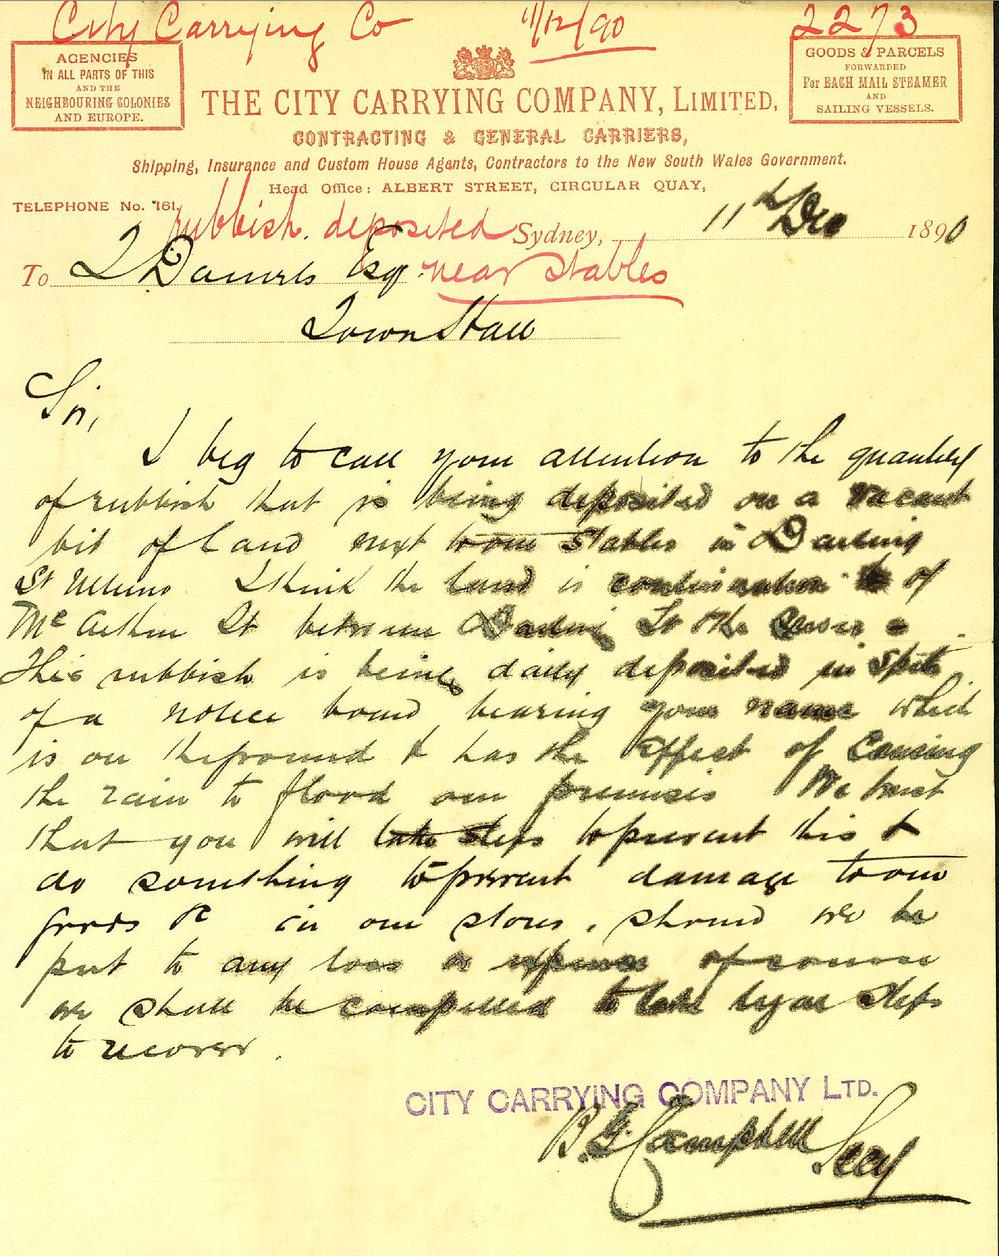 City Carrying Co 11/12/90 2273
AGENCIES
IN ALL PARTS OF THIS
AND THE
NEIGHBOURING COLONIES
AND EUROPE.
GOODS & PARCELS
FORWARDED
Per EACH MAIL STEAMER
AND
SAILING VESSELS.
THE CITY CARRYING COMPANY, LIMITED,
CONTRACTING & GENERAL CARRIERS,
Shipping, Insurance and Custom House Agents, Contractors to the New South Wales Government.
Head Office: ALBERT STREET, CIRCULAR QUAY,
TELEPHONE No. 161.
rubbish deposited
near stables
Sydney, 11th Dec 1890
To Daniels Esq
Town Hall
Sir,
I beg to call your attention to the quantity
of rubbish that is being deposited on a vacant
bit of land next to our stables in Darling
St I think the land is continuation of
McArthur St between Darling St & the
This rubbish is being daily deposited in spite
of a notice board bearing your name which
is on the ground & has the effect of causing
the rain to flood our premises We trust
that you will take steps to prevent this &
do something to prevent damage to our
goods &c in our stores, should we be
put to any loss or expense of course
we shall be compelled to take legal steps
to recover.
CITY CARRYING COMPANY LTD.
B.G. Campbell Secy